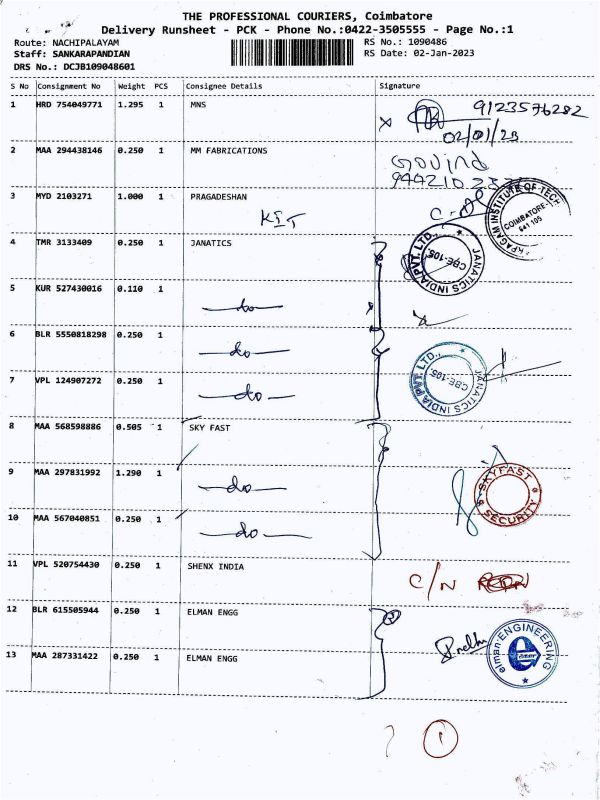 THE PROFESSIONAL COURIERS, Coimbatore
Delivery Runsheet - PCK - Phone No.:0422-3505555 - Page No.:1
Route: NACHIPALAYAM RS No.: 1090486
Staff: SANKARAPANDIAN RS Date: 02-Jan-2023
DRS No.: DCJB109048601
S No Consignment No Weight PCS Consignee Details Signature
1 HRD 754049771 1.295 1 MNS
9123576282
02/01/23
2 MAA 294438146 0.250 1 MM FABRICATIONS
Govind
3 MYD 2103271 1.000 1 PRAGADESHAN
KIT
INSTITUTE OF TECH
COIMBATORE-
641 105
4 TMR 3133409 0.250 1 JANATICS
JANATICS INDIA PVT. LTD.,
CBE-105.
5 KUR 527430016 0.110 1
do
6 BLR 5550818298 0.250 1
do
7 VPL 124907272 0.250 1
do
JANATICS INDIA PVT. LTD.,
CBE-105.
8 MAA 568598886 0.505 1 SKY FAST
9 MAA 297831992 1.290 1
do
SKYFAST
SECURITY
10 MAA 567040851 0.250 1
do
11 VPL 520754430 0.250 1 SHENX INDIA
C/N
12 BLR 615505944 0.250 1 ELMAN ENGG
2
Prabhu
elman ENGINEERING
13 MAA 287331422 0.250 1 ELMAN ENGG
1